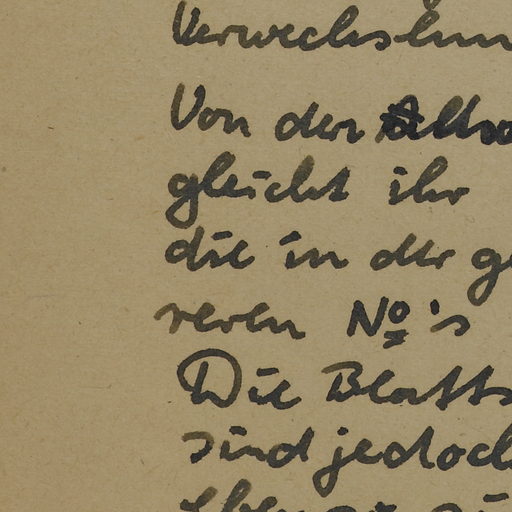 Verwechslun
Von den
gleicht ihr
die in der ge
reren No's
Die Blatts
sind jedoch